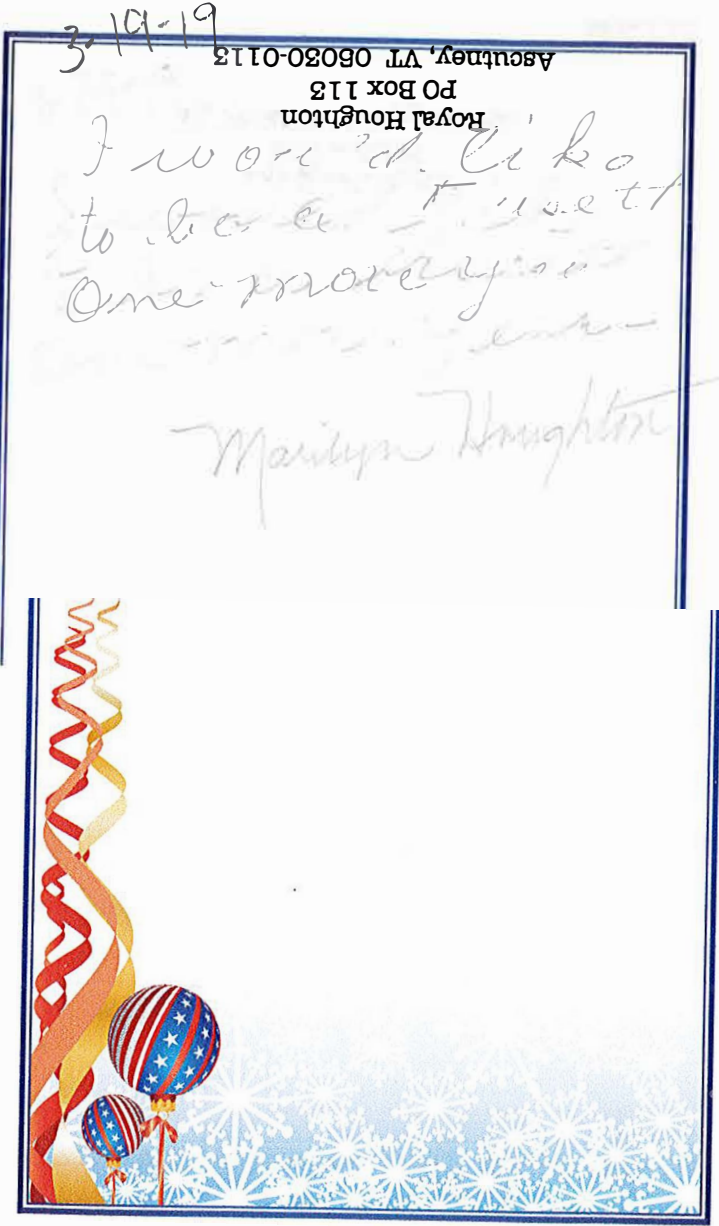 3-19-19
Royal Houghton
PO Box 113
Ascutney, VT 05030-0113
I wou'd like
to be a
One more
Marilyn Houghton